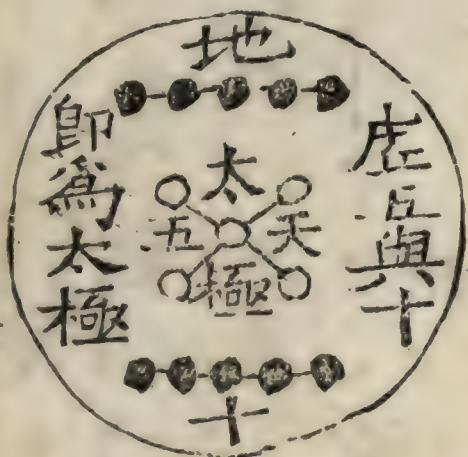 地
虛五與十
太
天
五
極
即爲太極
十